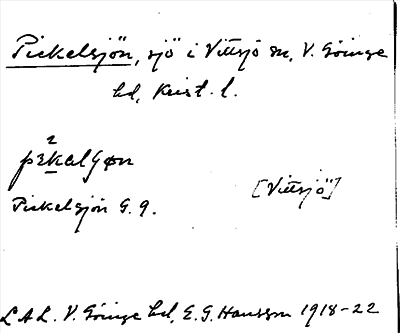 Pickelsjön, sjö i Vittsjö sn, V. Göinge
hd, Krist. l.
2
pɛkalʃøn
Pickelsjön G. 9.
[Vittsjö]
LAL. V. Göinge hd, E. G. Hansson 1918-22